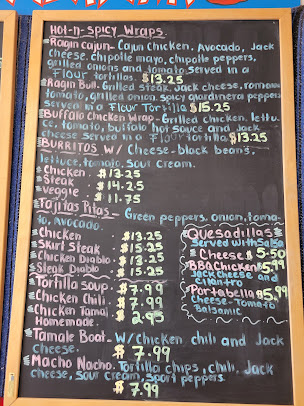 Hot-n-Spicy Wraps.
Ragin cajun- Cajun Chicken, Avocado, Jack
cheese, chipotle mayo, chipotle peppers,
grilled onions and tomato served in a
Flour tortillas. $13.25
Ragin Bull- Grilled steak, Jack cheese, romaine
tomato, grilled onion, spicy giardinera peppers
served in a Flour Tortilla $15.25
Buffalo Chicken Wrap- Grilled chicken, lettu
ce, tomato, buffalo hot sauce and Jack
cheese Served in a Flour tortilla $13.25
BURRITOS W/ Cheese- black beans,
lettuce, tomato, Sour cream.
Chicken. $13.25
Steak $14.25
Veggie $11.75
Fajitas Pitas- Green peppers, onion, toma-
to, Avocado.
Chicken $13.25
Skirt Steak $15.25
Chicken Diablo $13.25
Steak Diablo $15.25
Quesadillas
Served with Salsa
Cheese $5.50
BBQ Chicken $5.99
Jack cheese and
cilantro
Portabella $5.99
Cheese-Tomato
Balsamic
Tortilla Soup. $7.99
Chicken Chili. $7.99
Chicken Tamal $2.95
Homemade.
Tamale Boat- W/ Chicken chili and Jack
cheese. $7.99
Macho Nacho. Tortilla chips, chili, Jack
cheese, sour cream, sport peppers
$7.99